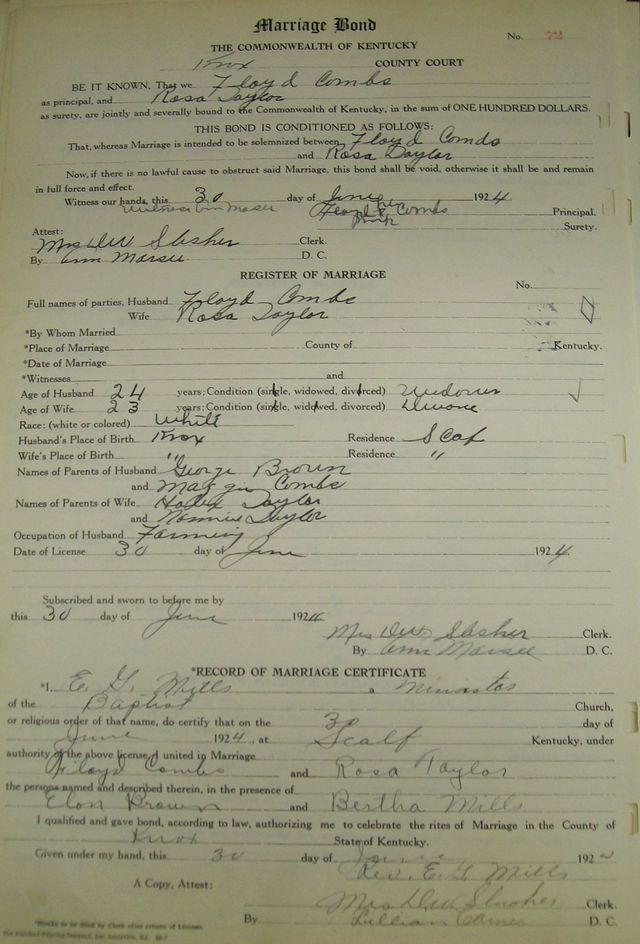 Marriage Bond
No. 72
THE COMMONWEALTH OF KENTUCKY
Knox COUNTY COURT
BE IT KNOWN, That we Floyd Combs
as principal, and Rosa Taylor
as surety, are jointly and severally bound to the Commonwealth of Kentucky, in the sum of ONE HUNDRED DOLLARS.
THIS BOND IS CONDITIONED AS FOLLOWS:
That, whereas Marriage is intended to be solemnized between Floyd Combs
and Rosa Taylor
Now, if there is no lawful cause to obstruct said Marriage, this bond shall be void, otherwise it shall be and remain
in full force and effect.
Witness our hands, this 30 day of June 1924
Witness Ann Floyd his x Combs Principal.
mark Surety.
Attest:
Mrs DW Slusher Clerk.
By Ann D. C.
REGISTER OF MARRIAGE
No.
Full names of parties, Husband Floyd Combs
Wife Rosa Taylor
*By Whom Married
*Place of Marriage County of Kentucky.
*Date of Marriage
*Witnesses and
Age of Husband 24 years; Condition (single, widowed, divorced) Widower
Age of Wife 23 years; Condition (single, widowed, divorced) Divorce
Race: (white or colored) White
Husband's Place of Birth Knox Residence Scalf
Wife's Place of Birth " Residence "
Names of Parents of Husband George Brown
and Maggie Combs
Names of Parents of Wife Taylor
and Nannie Taylor
Occupation of Husband Farming
Date of License 30 day of June 1924
Subscribed and sworn to before me by
this 30 day of June 1924
Mrs DW Slusher Clerk.
By Ann D. C.
*RECORD OF MARRIAGE CERTIFICATE
*I, E. G. Mills a Minister
of the Baptist Church,
or religious order of that name, do certify that on the 30 day of
June 1924, at Scalf Kentucky, under
authority of the above license, I united in Marriage
Floyd Combs and Rosa Taylor
the persons named and described therein, in the presence of
Elon Brown and Bertha Mills
I qualified and gave bond, according to law, authorizing me to celebrate the rites of Marriage in the County of
Knox State of Kentucky.
Given under my hand, this 30 day of June 192
Rev. E. G. Mills
A Copy, Attest:
Mrs DW Slusher Clerk.
By Lillian D. C.
*Blanks to be filled by Clerk after return of License.